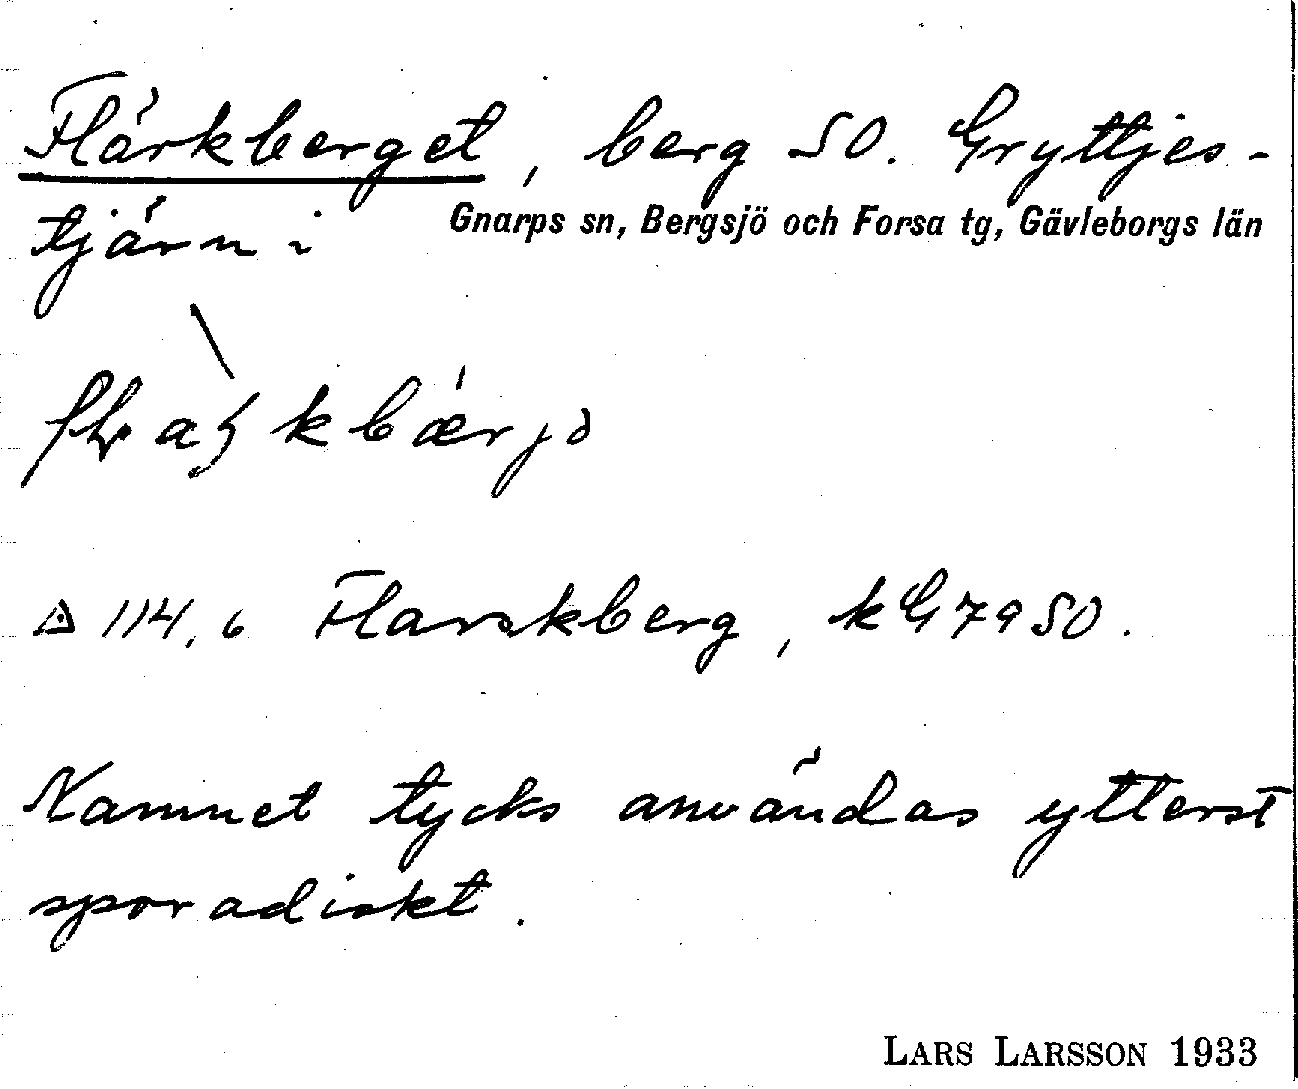 Flärkberget, berg SO. Gryttjes-
tjärn i Gnarps sn, Bergsjö och Forsa tg, Gävleborgs län
△ 114,6 Flarskberg, kG79SO.
Namnet tycks användas ytterst
sporadiskt.
LARS LARSSON 1933